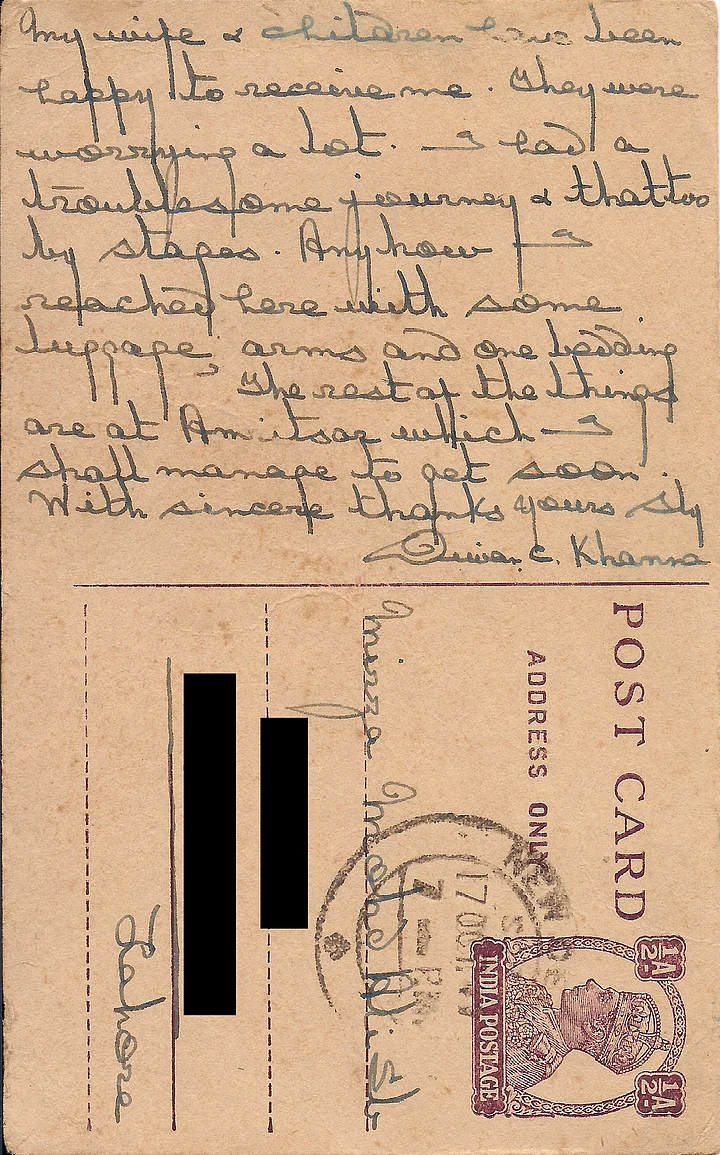 My wife & children have been
happy to receive me. They were
worrying a lot. I had a
troublesome journey & that too
by stages. Anyhow I
reached here with some
luggage, arms and one bedding
The rest of the things
are at Amritsar which I
shall manage to get soon.
With sincere thanks yours sly
Diwan C. Khanna
POST CARD
ADDRESS ONLY
½A ½A
INDIA POSTAGE
NEW
17 OC
7 - PM
Mirza Ali
Lahore